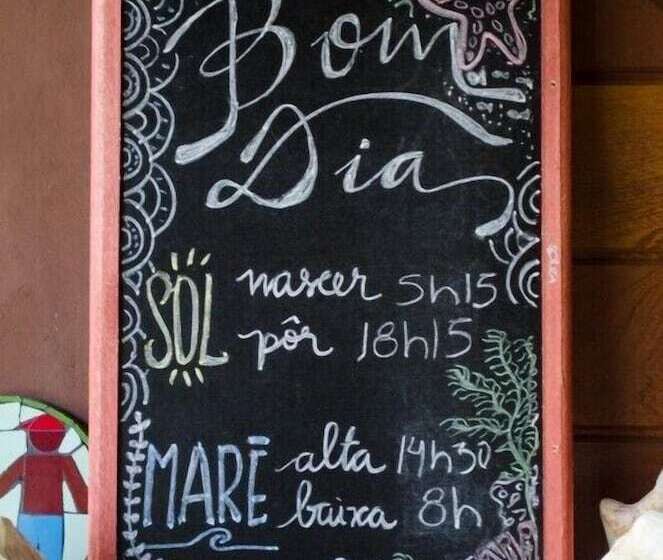 Bom
Dia
SOL nascer 5h15
pôr 18h15
MARÉ alta 14h30
baixa 8h